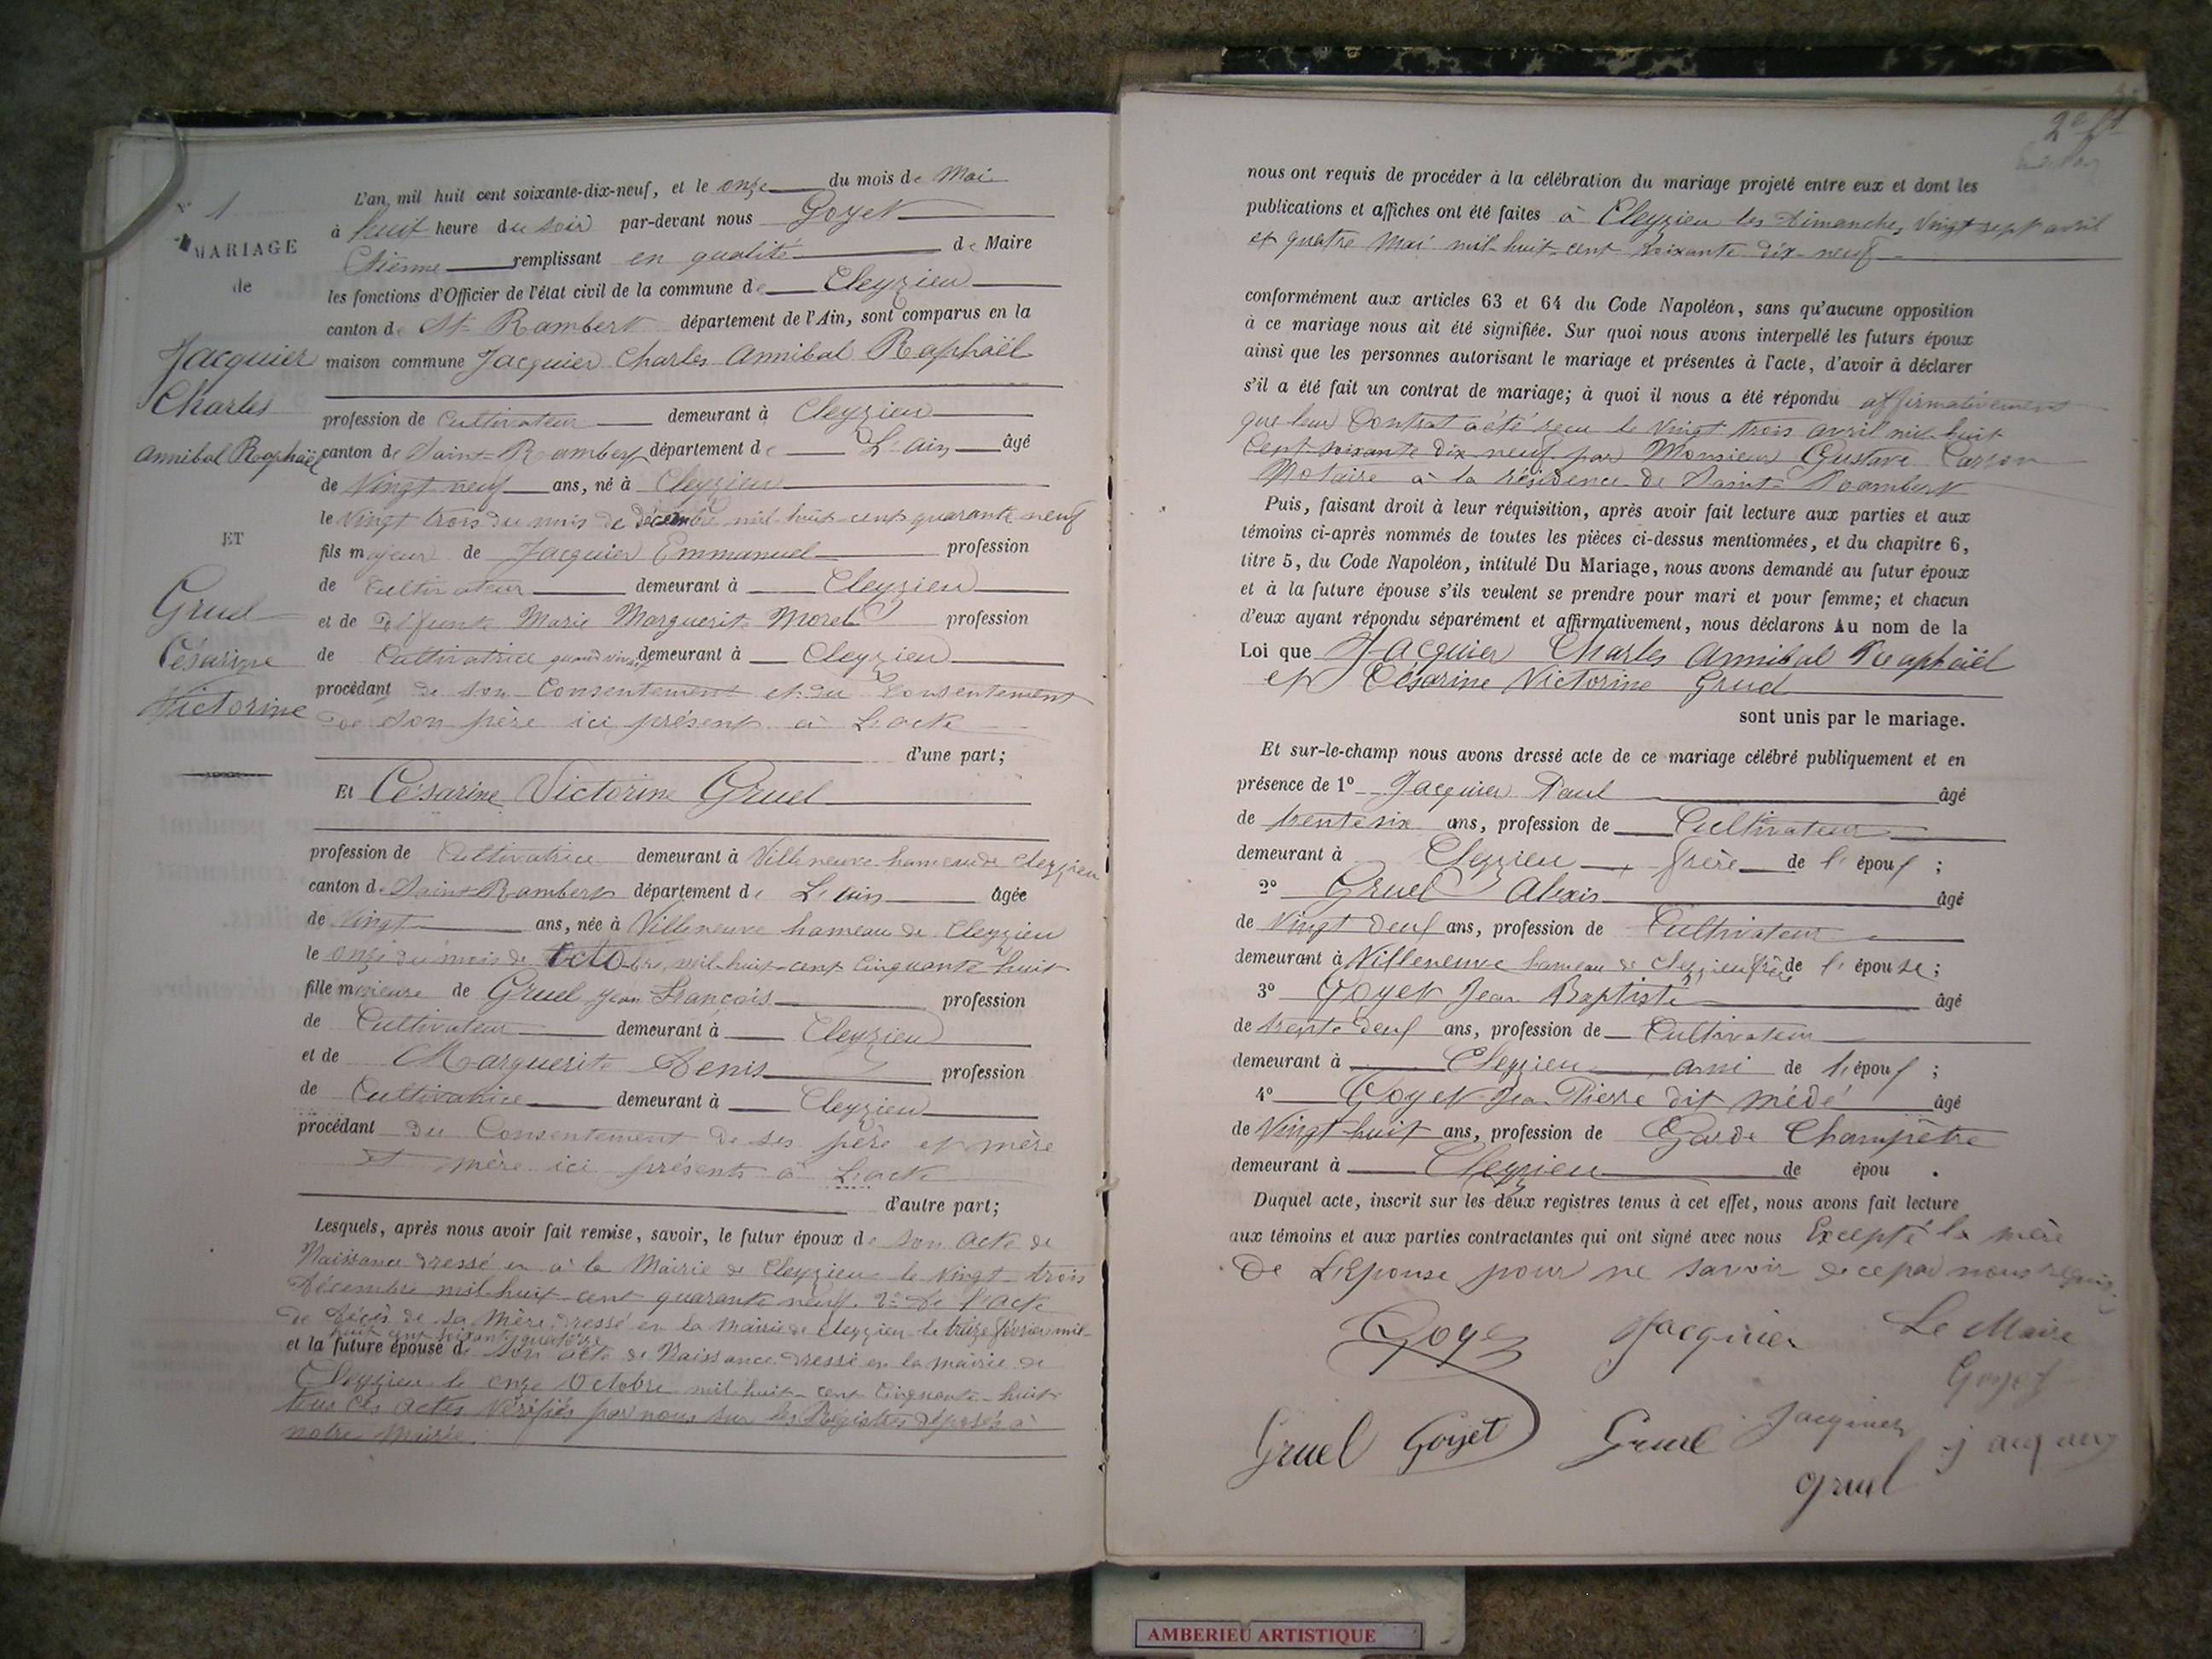 N° 1
MARIAGE
de
Jacquier
Charles
Annibal Raphaël
ET
Gruel
Césarine
Victorine
L'an mil huit cent soixante-dix-neuf, et le onze du mois de Mai
à huit heure du soir par-devant nous Goyet
Etienne remplissant en qualité de Maire
les fonctions d'Officier de l'état civil de la commune de Cleyzieu
canton de St Rambert département de l'Ain, sont comparus en la
maison commune Jacquier Charles Annibal Raphaël
profession de Cultivateur demeurant à Cleyzieu
canton de Saint-Rambert département de L'ain âgé
de Vingt neuf ans, né à Cleyzieu
le Vingt trois du mois de décembre mil-huit-cent quarante neuf
fils majeur de Jacquier Emmanuel profession
de Cultivateur demeurant à Cleyzieu
et de défunte Marie Marguerite Morel profession
de Cultivatrice quand vivait demeurant à Cleyzieu
procédant de son Consentement et du Consentement
de son père ici présent à L'acte
d'une part;
Et Césarine Victorine Gruel
profession de Cultivatrice demeurant à Villeneuve hameau de Cleyzieu
canton de Saint-Rambert département de L'ain âgée
de Vingt ans, née à Villeneuve hameau de Cleyzieu
le onze du mois de Octobre mil-huit-cent Cinquante huit
fille mineure de Gruel Jean François profession
de Cultivateur demeurant à Cleyzieu
et de Marguerite Denis profession
de Cultivatrice demeurant à Cleyzieu
procédant du Consentement de ses père et mère
et mère ici présents à L'acte
d'autre part;
Lesquels, après nous avoir fait remise, savoir, le futur époux de son acte de
Naissance dressé en à la Mairie de Cleyzieu le Vingt-trois
Décembre mil-huit-cent quarante neuf. 2° de l'acte
de décès de sa Mère dressé en la mairie de Cleyzieu le treize février mil-
huit cent soixante quatorze
et la future épouse de son acte de Naissance dressé en la mairie de
Cleyzieu le onze Octobre mil-huit-cent Cinquante-huit
tous ces actes Vérifiés par nous sur les Registres déposés à
notre Mairie.
nous ont requis de procéder à la célébration du mariage projeté entre eux et dont les
publications et affiches ont été faites à Cleyzieu les Dimanches Vingt sept avril
et quatre Mai mil-huit-cent Soixante-dix-neuf
conformément aux articles 63 et 64 du Code Napoléon, sans qu'aucune opposition
à ce mariage nous ait été signifiée. Sur quoi nous avons interpellé les futurs époux
ainsi que les personnes autorisant le mariage et présentes à l'acte, d'avoir à déclarer
s'il a été fait un contrat de mariage; à quoi il nous a été répondu affirmativement
que leur Contrat a été reçu le Vingt trois avril mil huit
Cent soixante dix-neuf par Monsieur Gustave
Notaire à la résidence de Saint-Rambert
Puis, faisant droit à leur réquisition, après avoir fait lecture aux parties et aux
témoins ci-après nommés de toutes les pièces ci-dessus mentionnées, et du chapitre 6,
titre 5, du Code Napoléon, intitulé Du Mariage, nous avons demandé au futur époux
et à la future épouse s'ils veulent se prendre pour mari et pour femme; et chacun
d'eux ayant répondu séparément et affirmativement, nous déclarons Au nom de la
Loi que Jacquier Charles Annibal Raphaël
et Césarine Victorine Gruel
sont unis par le mariage.
Et sur-le-champ nous avons dressé acte de ce mariage célébré publiquement et en
présence de 1° Jacquier Paul âgé
de trente six ans, profession de Cultivateur
demeurant à Cleyzieu frère de l'époux ;
2° Gruel Alexis âgé
de Vingt deux ans, profession de Cultivateur
demeurant à Villeneuve hameau de Cleyzieu frère de l'épouse ;
3° Goyet Jean Baptiste âgé
de trente deux ans, profession de Cultivateur
demeurant à Cleyzieu ami de l'époux ;
4° Goyet Jean Pierre dit médé âgé
de Vingt huit ans, profession de Garde Champêtre
demeurant à Cleyzieu de épou .
Duquel acte, inscrit sur les deux registres tenus à cet effet, nous avons fait lecture
aux témoins et aux parties contractantes qui ont signé avec nous Excepté la mère
De L'Epouse pour ne savoir de ce par nous requis
Goyet Jacquier Le Maire
Goyet
Gruel Goyet Gruel Jacquier jacquier
gruel
AMBERIEU ARTISTIQUE